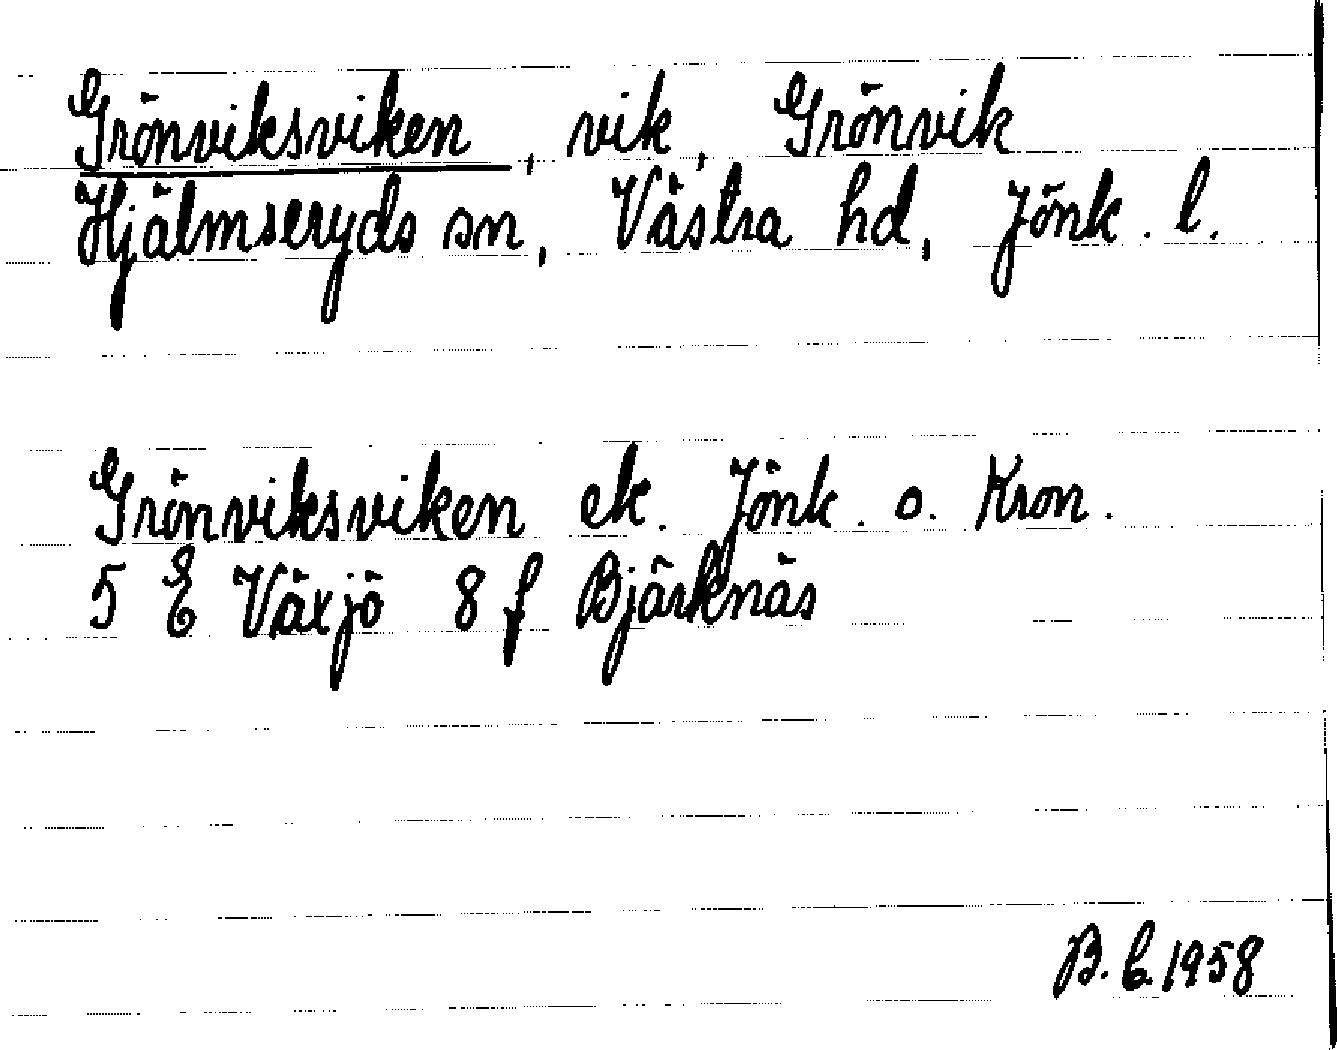 Grönviksviken, vik, Grönvik
Hjälmseryds sn, Västra hd, Jönk. l.
Grönviksviken ek. Jönk. o. Kron.
5 E Växjö 8 f Bjärknäs
B. C. 1958